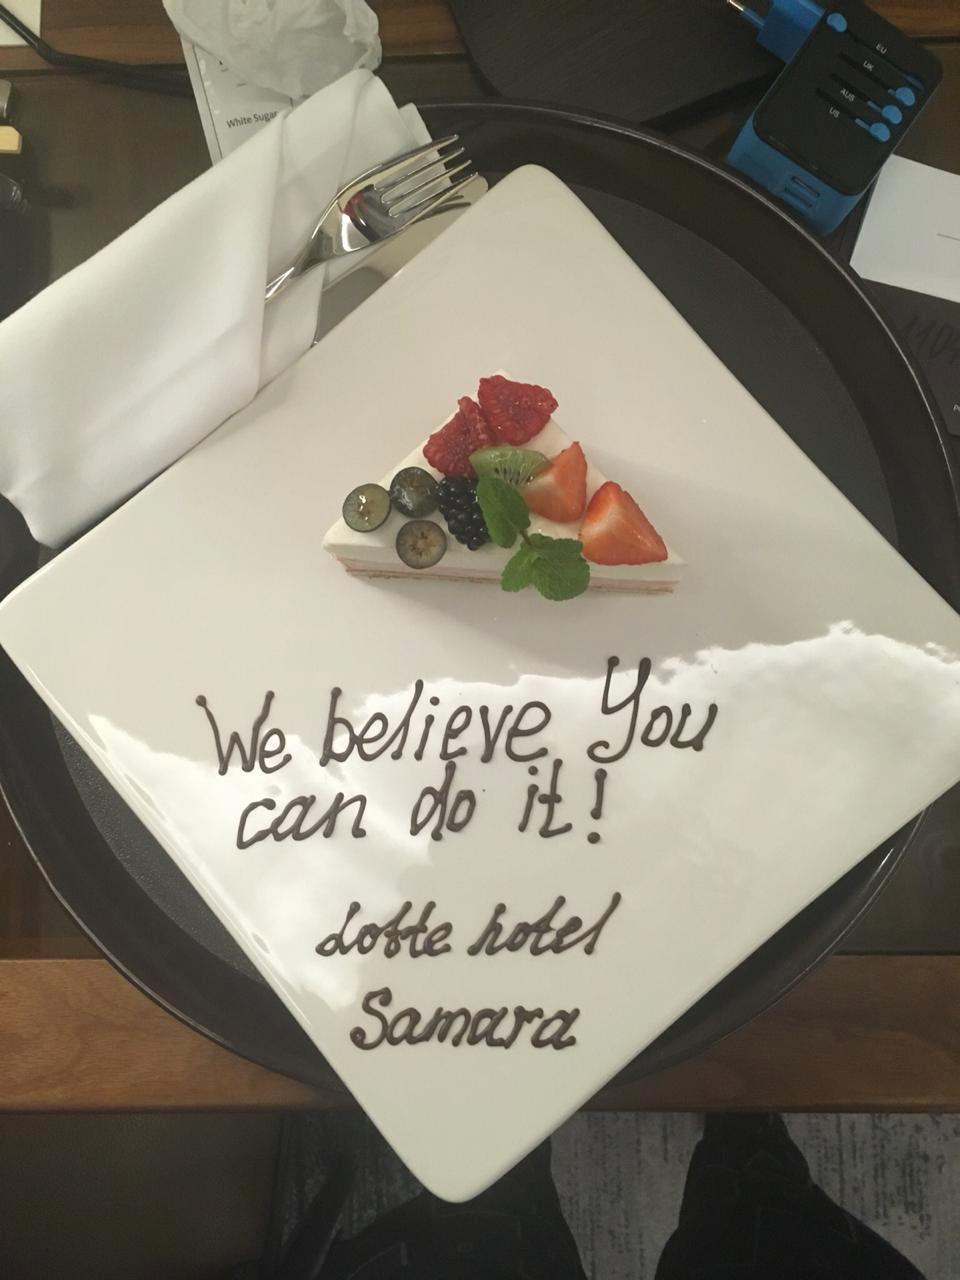 White Sugar
EU
UK
AUS
US
We believe You
can do it!
Lotte hotel
Samara